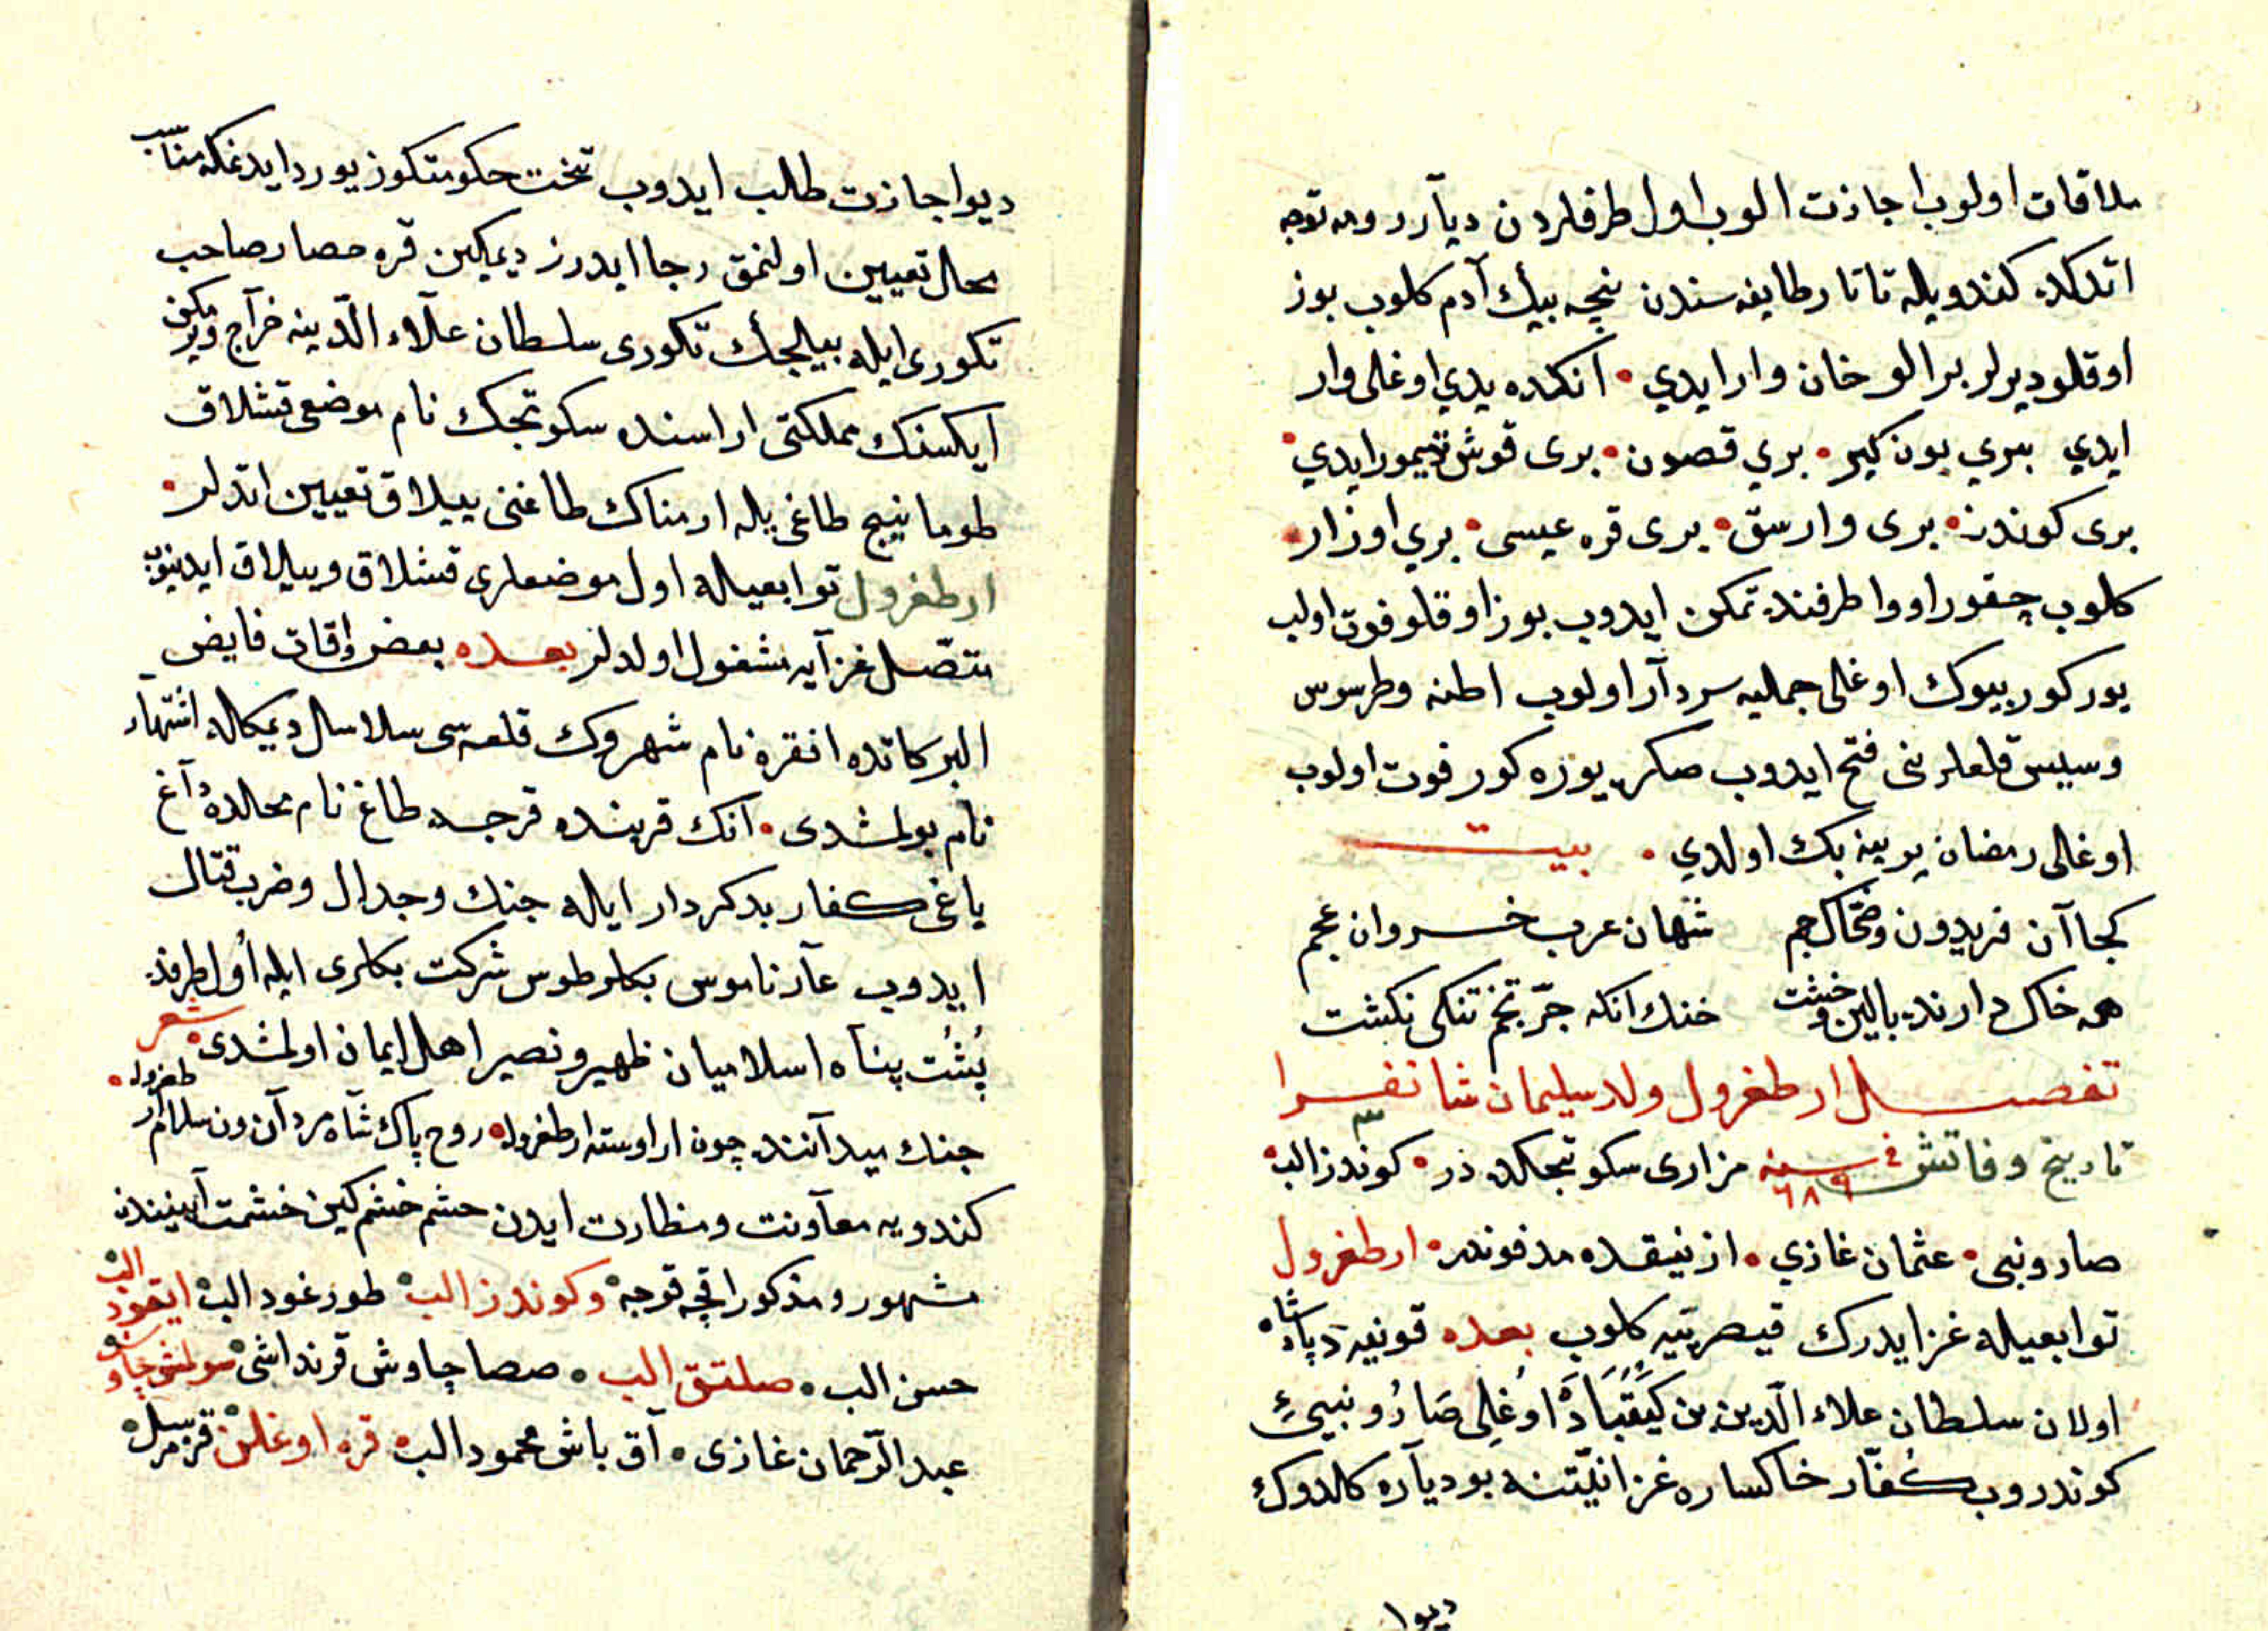 ملاقات اولوب اجازت الوب اول طرفلردن ديآر رومه توجه
اتدكده كندويله تاتار طايفه سندن نيجه بيك آدم كلوب يوز
اوقلو ديرلر بر الو خان وار ايدي • آنكده يدي اوغلى وار
ايدي بيري يون كير • بري قصون • برى قوش تيمور ايدي •
برى كوندز • برى وارسق • برى قره عيسى • بري اوزار •
كلوب چقور اووا طرفنده تمكن ايدوب يوز اوقلو فوت اولب
يوركور بيوك اوغلى جمليه سردآر اولوب اطنه وطرسوس
وسيس قلعلرينى فتح ايدوب صكره يوره كور فوت اولوب
اوغلى رمضان يرينه بك اولدي • بيت
كجا آن فريدون وضحاك جم شهان عرب خسروان عجم
همه خاك دارند بالين وخشت خنك آنكه جز تخم نيكى نكشت
تفصيل ارطغرول ولد سليمان شا نفرا
تاريخ وفاتش فى سنه ٦٨٩ مزارى سكوتجكده در • كوندز الب •
صارونبى • عثمان غازي • ازنيقده مدفوندر • ارطغرول
توابعيله غزا ايدرك قيصريّيه كلوب بعده قونيه ده پادشاه
اولان سلطان علاء الدّين بن كيقباده اوغلى صارو ينىيئ
كوندروب كفّار خاكساره غزا نيّتنه بو ديآره كلدوك
ديو ا
ديو اجازت طلب ايدوب تخت حكومتكوز يوردايدغكه مناسب
محال تعيين اولنمق رجا ايدرز ديمكين قره حصار صاحب
تكورى ايله بيلجك تكورى سلطان علآء الدّينه خرآج ويرمكن
ايكسنك مملكتى اراسنده سكوتجك نام موضعى قشلاق
طومانيج طاغى يله ارمناك طاغنى ييلاق تعيين اتدلر •
ارطغرول توابعيله اول موضعلرى قشلاق وييلاق ايدينوب
متصّل غزآيه مشغول اولدلر بعده بعض اوقات فايض
البركاتده انقره نام شهروك قلعه سى سلاسل ديمكله اشتهار
نام بولمشدى • آنك قربنده قرجه طاغ نام محالده آغ
ياغى كفار بدكردار ايله جنك وجدال وضرب قتال
ايدوب عآر ناموس بكلر طوس شركت بكلرى ايله اول طرفده
پشت پنآه اسلاميان ظهير ونصير اهل ايمان اولمشدى • شعر
جنك ميدآننده چون اراوسته ارطغرول • روح پاك شآه مردآن ون سلام آر طغرول •
كندويه معآونت ومظارت ايدن حشم خشم كين خشمت آييندن
مشهور ومذكور اقچه قوجه • وكوندز الب • طورغود الب • ايغود الب •
حسن الب • صلتق الب • صمصا چاوش قرنداشى سولمش چاوش •
عبد الرّحمان غازى • آق باش محمود الب • قره اوغلن • قره مرسل •